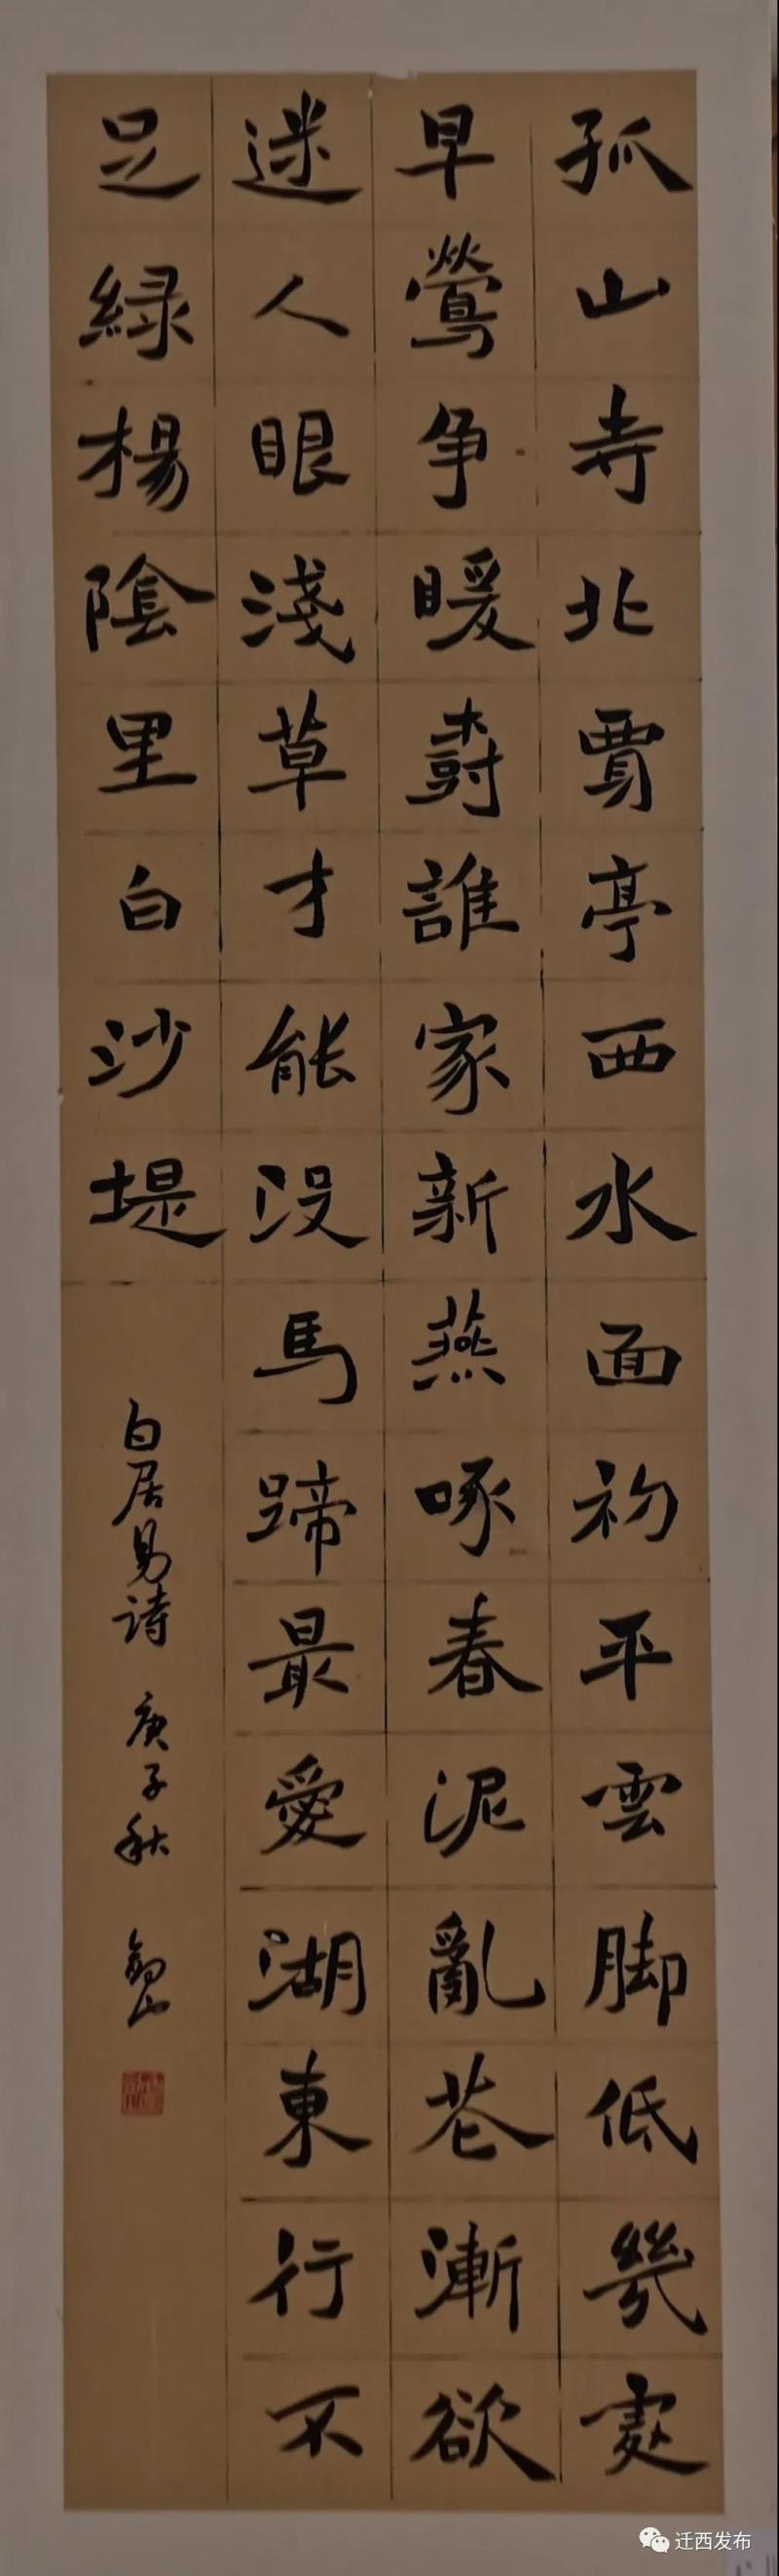 孤山寺北賈亭西水面初平雲脚低幾處
早鶯争暖樹誰家新燕啄春泥亂花漸欲
迷人眼淺草才能没馬蹄最愛湖東行不
足緑楊陰里白沙堤
白居易詩 庚子秋
迁西发布